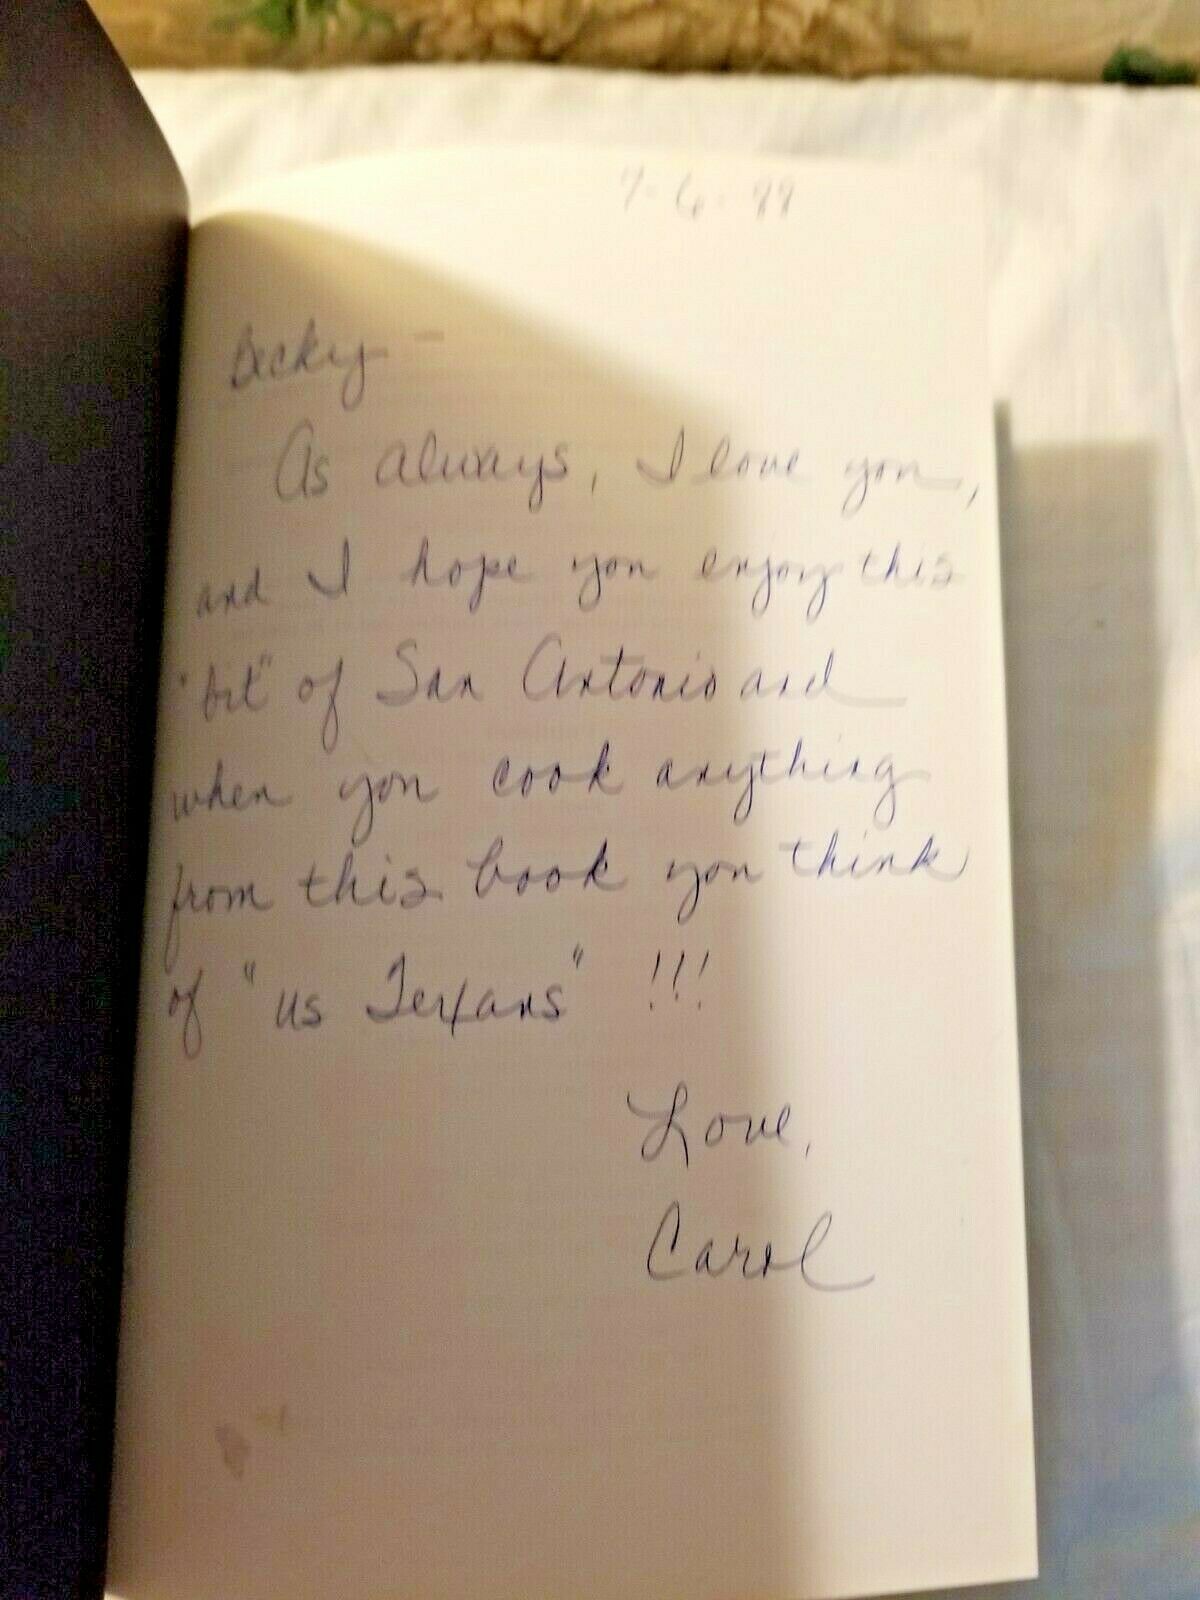 7-6-88
Becky -
As always, I love you,
and I hope you enjoy this
"bit" of San Antonio and
when you cook anything
from this book you think
of "us Texans" !!!
Love,
Carol